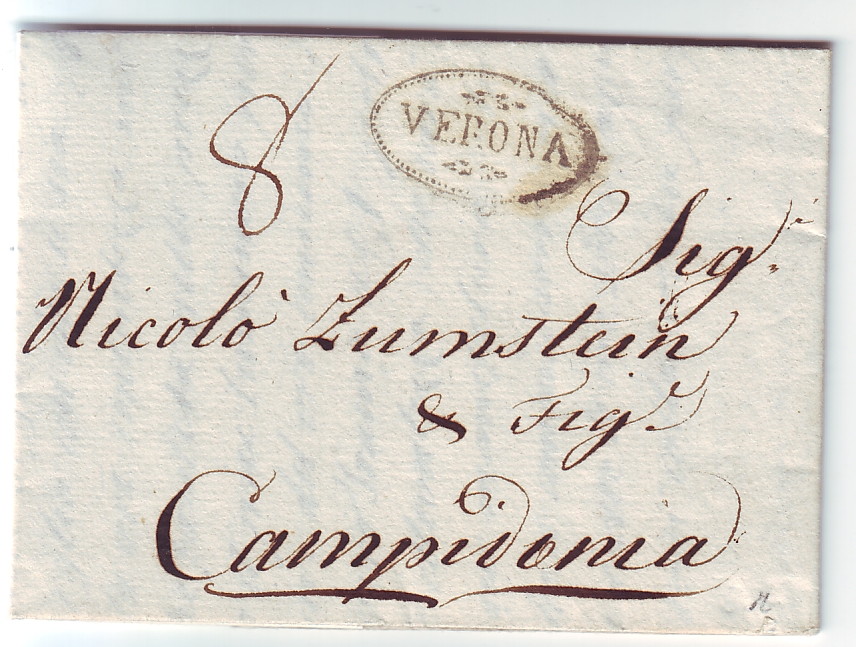 8
VERONA
Sig.r
Nicolò Zumstein
& Fig.
Campidonia